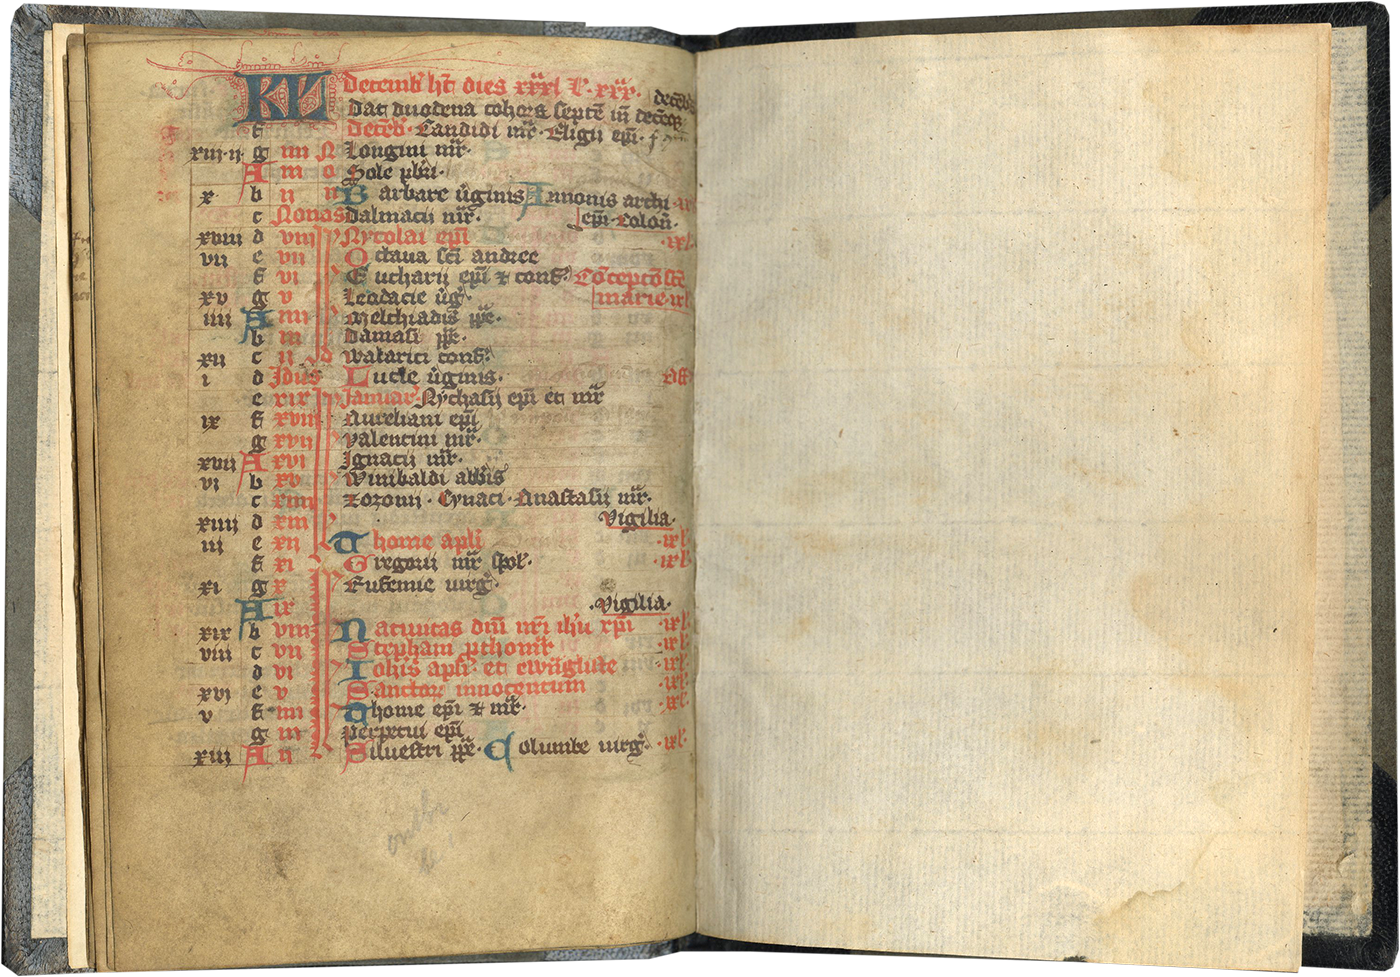 KL Decemb' ht dies xxxi L' xxx.
Dat duodena cohors septē in decēq
decēb'
f decēb'. Candidi mr'. Eligii epi.
xiii ii g iiii N Longini mr'.
A iii o Sole pbri.
x b ii n Barbare v'ginis Annonis archi
c Nonas Dalmacii mr'. epi Colon'.
xviii d viii Nycolai epi ix l'
vii e vii Octaua sci andree
f vi Eucharii epi et conf' Cōceptō scē
xv g v Leodacie v'g'. marie ix l'
iiii A iiii Melchiadis pp'e.
b iii Damasi pp'e.
xii c ii d Walarici conf'.
i d Idus Lucie v'ginis.
e xix Januar' Nychasii epi et mr'
ix f xviii Aureliani epi
g xvii Valentini mr'.
xvii A xvi Ignacii mr'.
vi b xv Winibaldi abb'is
c xiiii Zozomi. Cyriaci. Anastasii mr'.
xiiii d xiii Vigilia.
iii e xii Thome apli ix l'
f xi Gregorii mr' spol'. ix l'
xi g x Eufemie uirg'.
A ix .Vigilia.
xix b viiii Natiuitas dni nri ihu xpi ix l'
viii c vii Stephani pthom'r ix l'
d vi Iohis apli et ewāgliste ix l'
xvi e v Sanctor' innocentum ix l'
v f iiii Thome epi et mr'. ix l'
g iii Perpetui epi
xiii A ii Siluestri pp'e. Columbe uirg'. ix l'